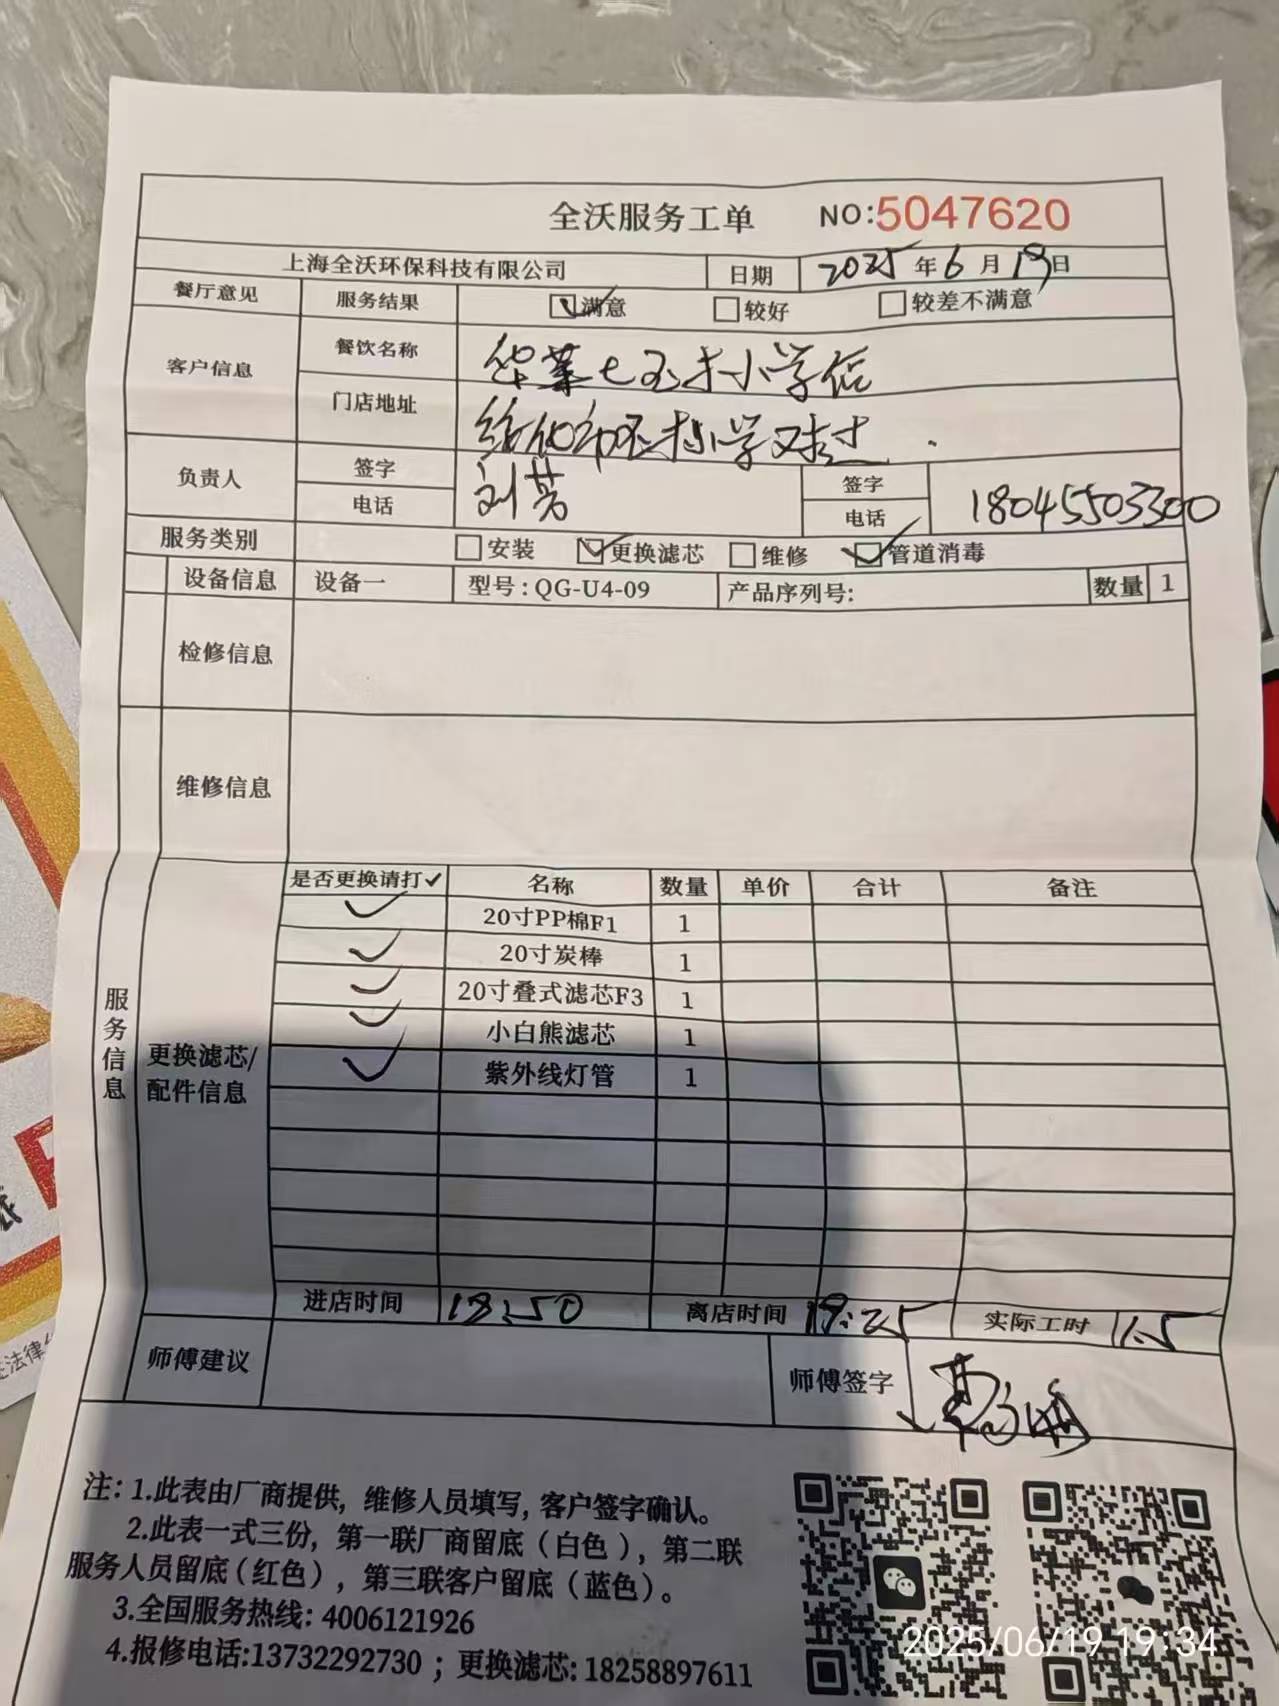 全沃服务工单 NO:5047620
上海全沃环保科技有限公司 日期 2025年6月19日
餐厅意见 服务结果 满意 较好 较差不满意
客户信息 餐饮名称 华莱士玉林小学店
门店地址 绥化市玉林小学对过
负责人 签字 电话 刘芳 签字 电话 18045503300
服务类别 安装 更换滤芯 维修 管道消毒
设备信息 设备一 型号:QG-U4-09 产品序列号: 数量 1
检修信息
维修信息
服务信息
更换滤芯/配件信息
是否更换请打✓ 名称 数量 单价 合计 备注
✓ 20寸PP棉F1 1
✓ 20寸炭棒 1
✓ 20寸叠式滤芯F3 1
✓ 小白熊滤芯 1
✓ 紫外线灯管 1
进店时间 18:50 离店时间 19:25 实际工时 1.5
师傅建议 师傅签字
注:1.此表由厂商提供,维修人员填写,客户签字确认。
2.此表一式三份,第一联厂商留底(白色),第二联
服务人员留底(红色),第三联客户留底(蓝色)。
3.全国服务热线:4006121926
4.报修电话:13732292730;更换滤芯:18258897611
2025/06/19 19:34